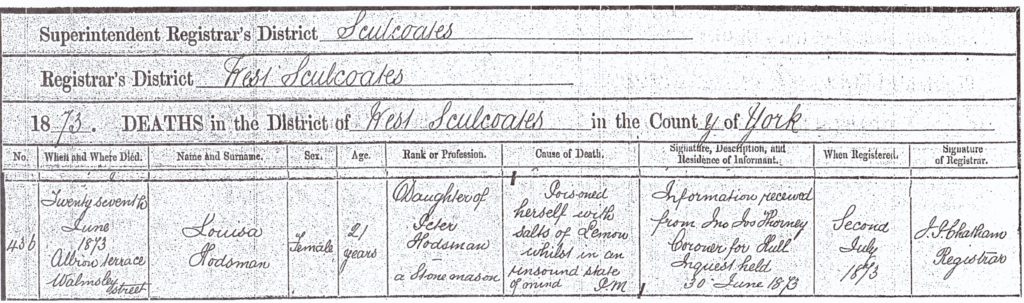 Superintendent Registrar's District Sculcoates
Registrar's District West Sculcoates
1873. DEATHS in the District of West Sculcoates in the County of York
No. When and Where Died. Name and Surname. Sex. Age. Rank or Profession. Cause of Death. Signature, Description, and Residence of Informant. When Registered. Signature of Registrar.
436
Twenty seventh
June
1873
Albion terrace
Walmsley street
Louisa
Hodsman
Female
21
years
Daughter of
Peter
Hodsman
a Stone mason
Poisoned
herself with
salts of Lemon
whilst in an
unsound state
of mind P.M
Information received
from Jno Jos Thorney
Coroner for Hull
Inquest held
30 June 1873
Second
July
1873
Chatham
Registrar